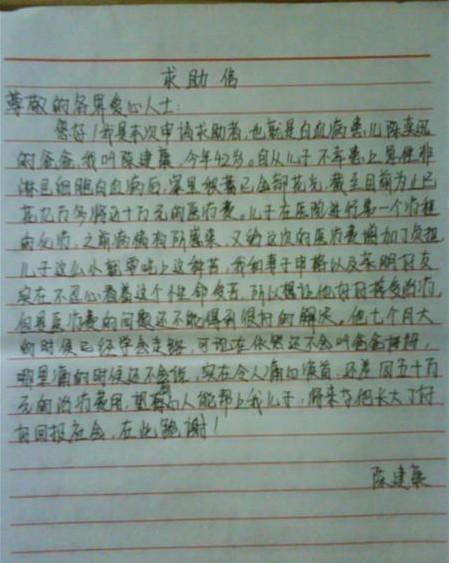 求助信
尊敬的各界爱心人士:
您好!我是本次申请求助者,也就是白血病患儿陈奕迅
的爸爸,我叫陈建集,今年42岁。自从儿子不幸患上急性非
淋巴细胞白血病后,家里积蓄已全部花光,截至目前为止已
花几万多将近十万元的医疗费。儿子在医院进行第一个疗程
的化疗,之前病情有所感染,又给这次的医疗费增加了负担
儿子这么小就要吃上这种苦,我和妻子申格以及亲朋好友
实在不忍心看着这个小生命受苦,所以想让他好好接受治疗,
但是医疗费的问题还不能得到很好的解决。他七个月大
的时候已经学会走路,可现在依然还不会叫爸爸妈妈,
哪里痛的时候还不会说,实在令人痛心疾首,还差四五十万
元的治疗费用,望有心人能帮上我儿子,将来等他长大了好
好回报社会,在此跪谢!
陈建集